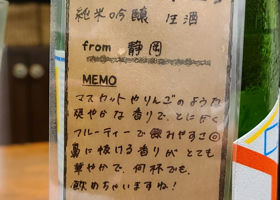 純米吟醸 生酒
from 静岡
MEMO
マスカットやりんごのような
爽やかな香りで、とにかく
フルーティーで飲みやすさ◎
鼻に抜ける香りが とても
華やかで、何杯でも
飲めちゃいますね!